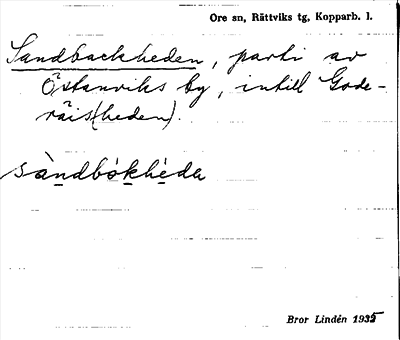 Ore sn, Rättviks tg, Kopparb. l.
Sandbackheden, parti av
Östanviks by, intill Gode-
räis(heden).
sàndbókhèda
Bror Lindén 1935